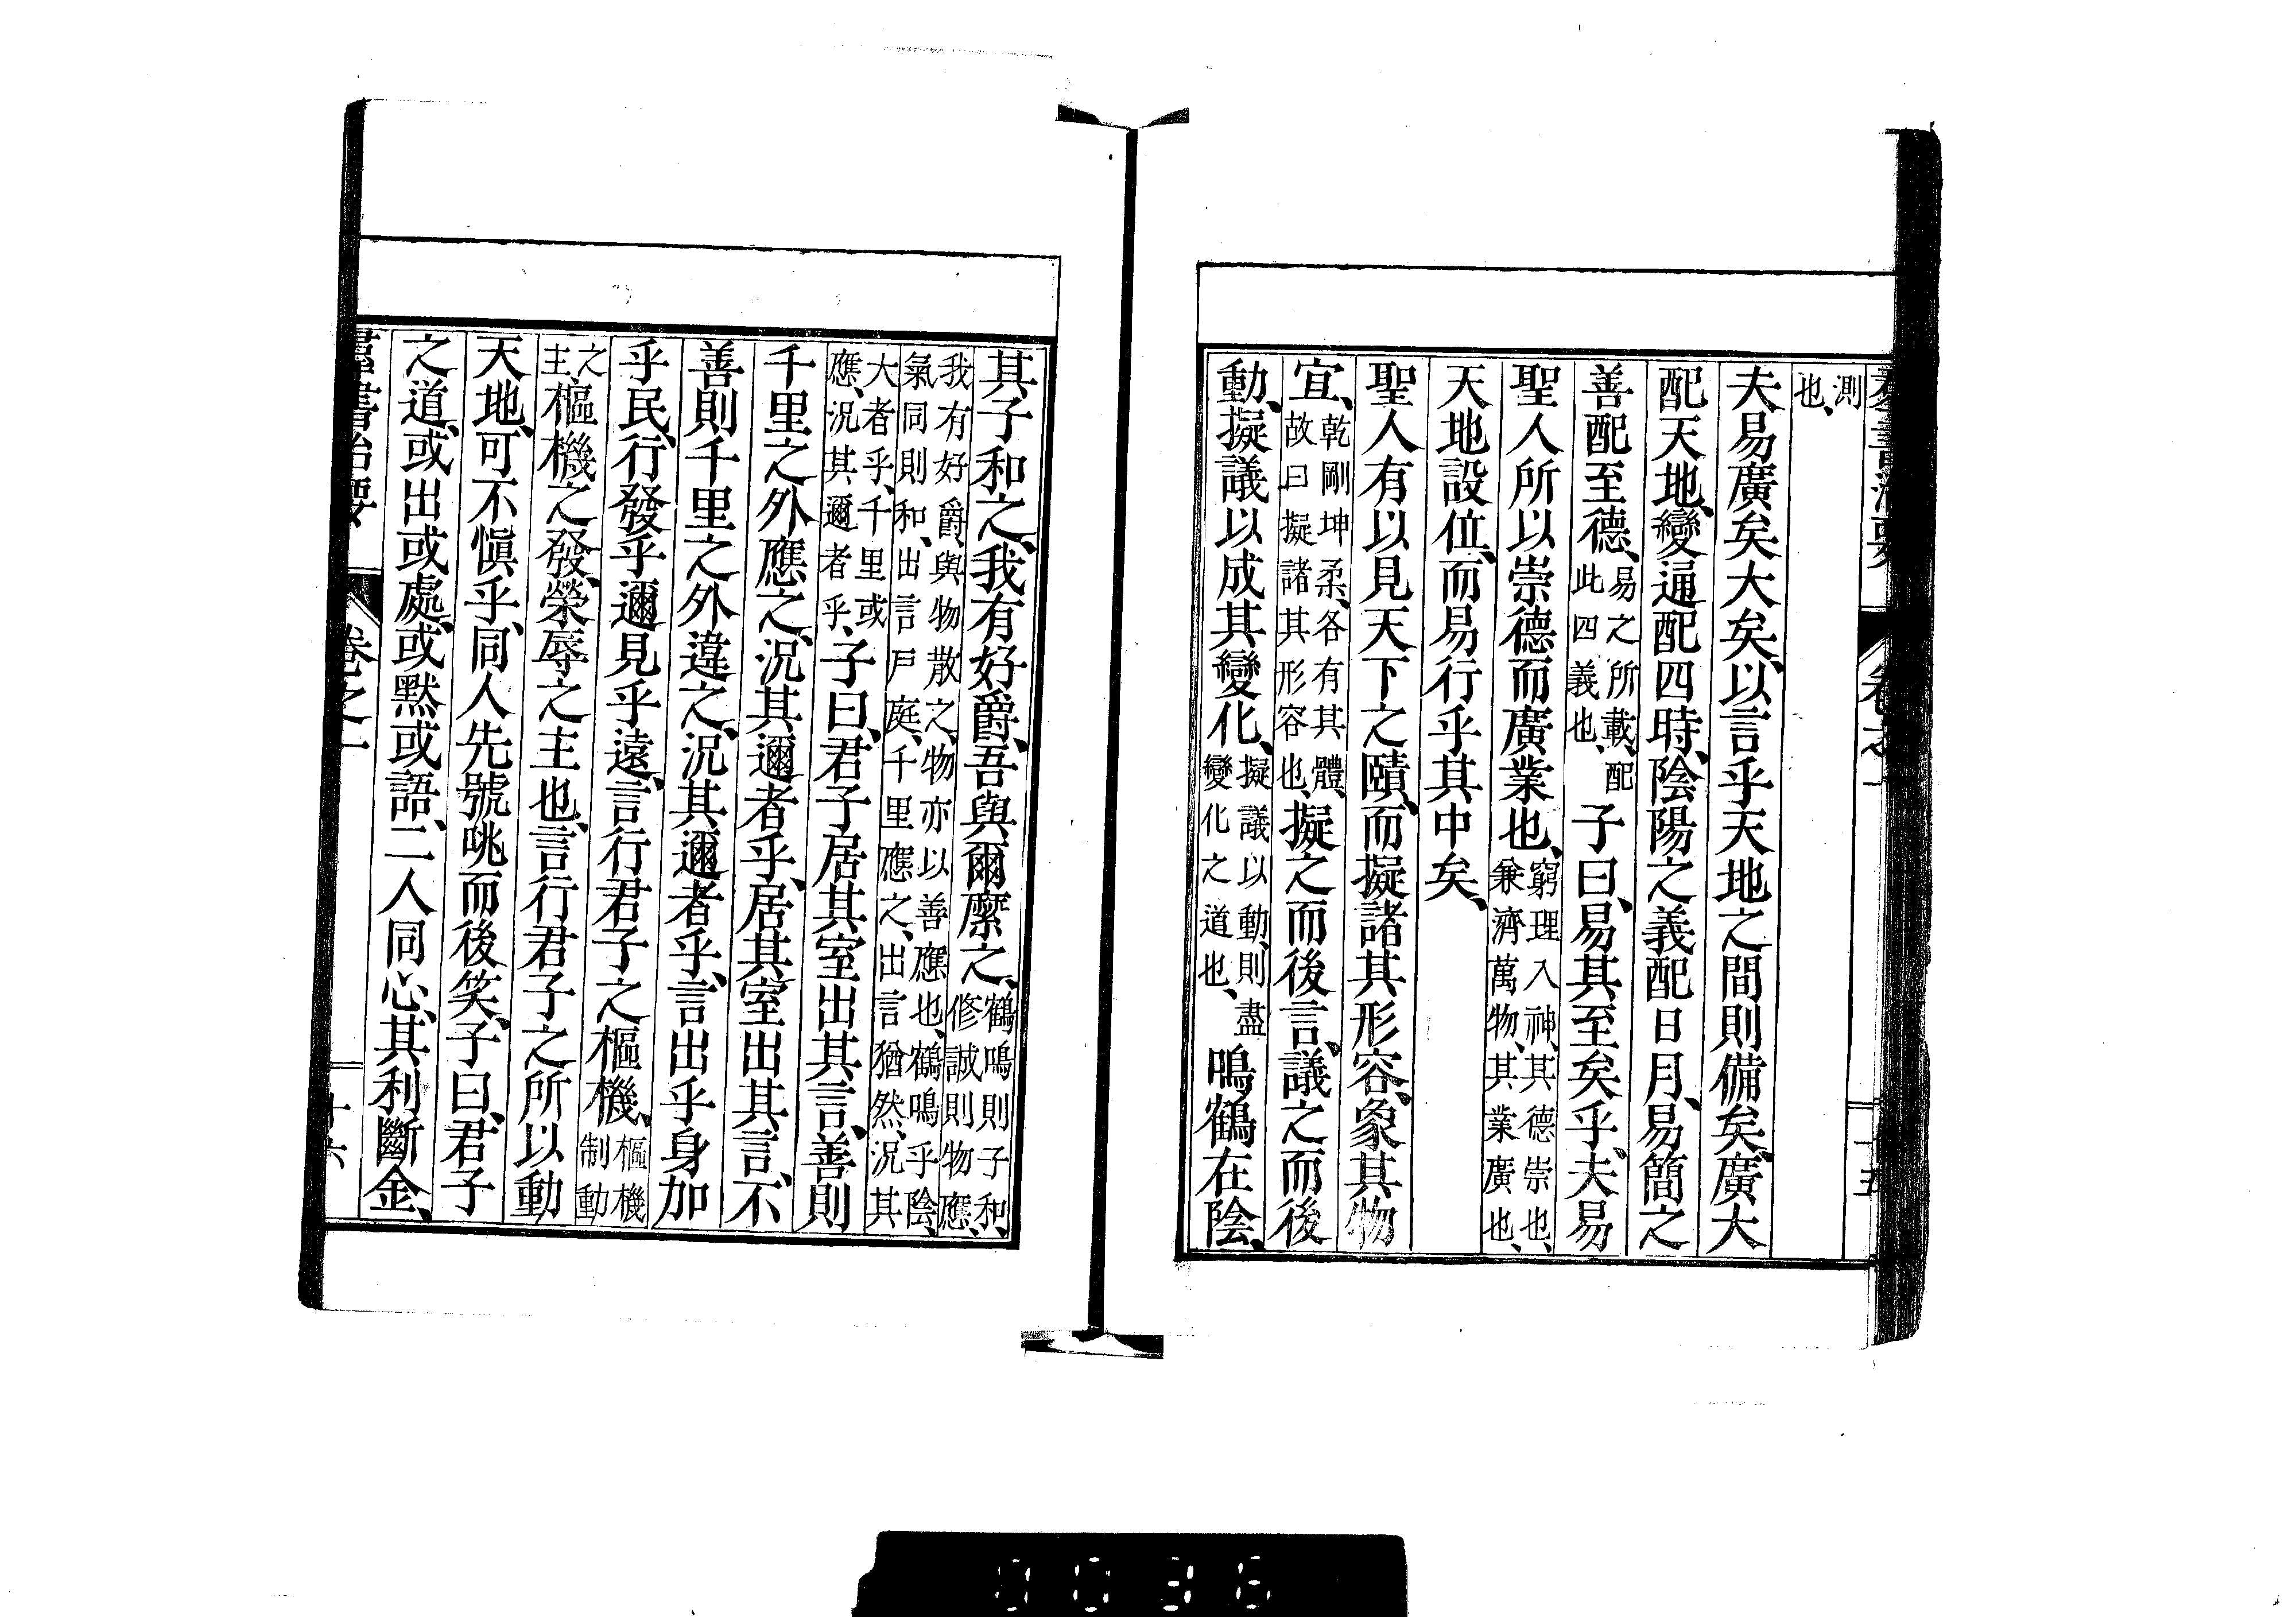 羣書治要 卷之一 十五
測也、
夫易廣矣大矣、以言乎天地之間則備矣、廣大
配天地、變通配四時、陰陽之義配日月、易簡之
善配至德、易之所載、配此四義也、子曰、易其至矣乎、夫易
聖人所以崇德而廣業也、窮理入神、其德崇也、兼濟萬物、其業廣也、
天地設位、而易行乎其中矣、
聖人有以見天下之賾、而擬諸其形容、象其物
宜、乾剛坤柔、各有其體、故曰擬諸其形容也、擬之而後言、議之而後
動、擬議以成其變化、擬議以動、則盡變化之道也、鳴鶴在陰、
其子和之、我有好爵、吾與爾縻之、鶴鳴則子和、修誠則物應、
我有好爵、與物散之、物亦以善應也、鶴鳴乎陰、氣同則和、出言戶庭、千里應之、出言猶然、況其
大者乎、千里或應、況其邇者乎、子曰、君子居其室出其言、善則
千里之外應之、況其邇者乎、居其室出其言、不
善則千里之外違之、況其邇者乎、言出乎身加
乎民、行發乎邇見乎遠、言行君子之樞機、樞機制動
之主、樞機之發、榮辱之主也、言行君子之所以動
天地、可不愼乎、同人先號咷而後笑、子曰、君子
之道、或出或處、或黙或語、二人同心、其利斷金、
羣書治要 卷之一 十六
0036